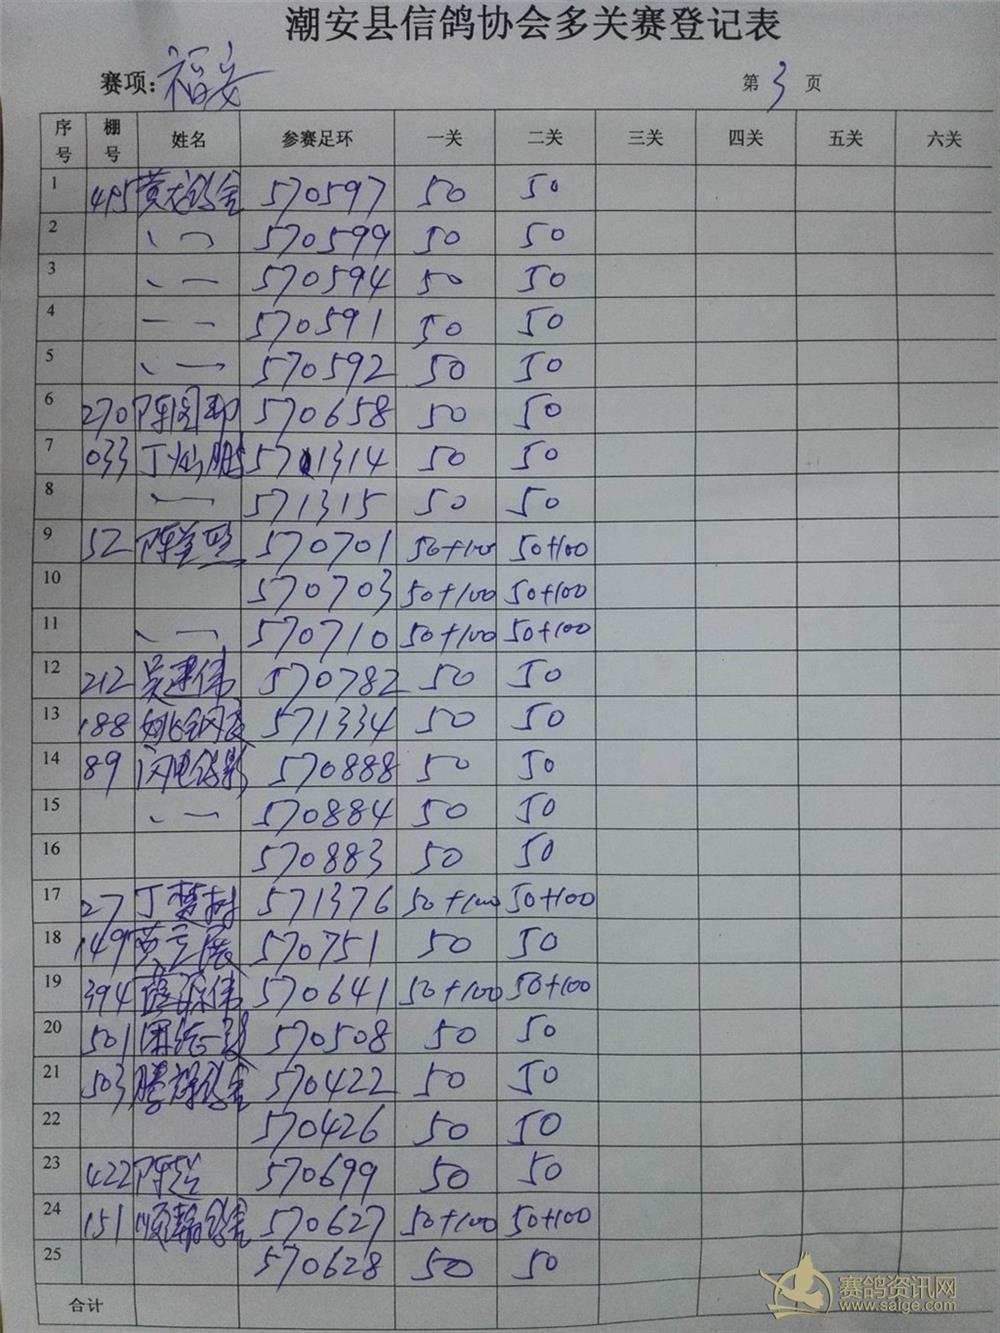 潮安县信鸽协会多关赛登记表
赛项: 福安 第 3 页
序号 棚号 姓名 参赛足环 一关 二关 三关 四关 五关 六关
1 495 570597 50 50
2 570599 50 50
3 570594 50 50
4 570591 50 50
5 570592 50 50
6 270 570658 50 50
7 033 丁灿鹏 571314 50 50
8 571315 50 50
9 52 570701 50+100 50+100
10 570703 50+100 50+100
11 570710 50+100 50+100
12 212 吴建伟 570782 50 50
13 188 571334 50 50
14 89 闪电鸽影 570888 50 50
15 570884 50 50
16 570883 50 50
17 27 丁楚树 571376 50+100 50+100
18 149 570751 50 50
19 394 570641 50+100 50+100
20 501 570508 50 50
21 503 腾辉鸽舍 570422 50 50
22 570426 50 50
23 422 陈超 570699 50 50
24 151 顺翰鸽舍 570627 50+100 50+100
25 570628 50 50
合计
赛鸽资讯网
www.saige.com